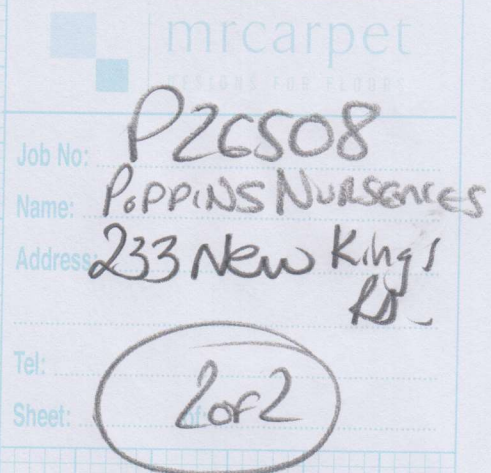 mrcarpet
DESIGNS FOR FLOORS
Job No: P26508
Name: POPPINS NURSERIES
Address: 233 New Kings
RD
Tel:
Sheet: 2 of 2